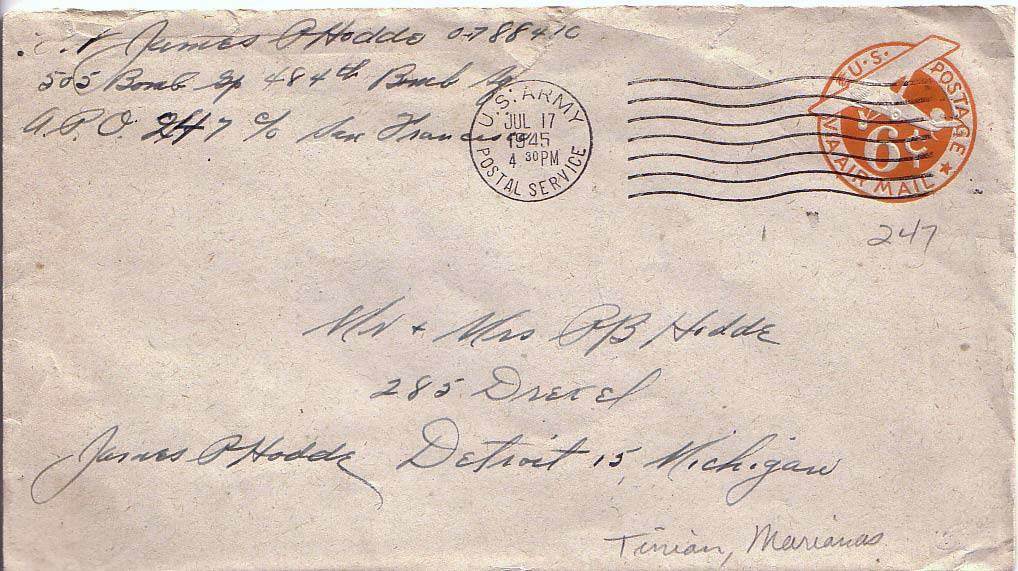 James P Hodde O-788410
505 Bomb Gp 484th Bomb Sq
A.P.O. 247 c/o San Francisco
U.S. ARMY
JUL 17
1945
4 30 PM
POSTAL SERVICE
U.S. POSTAGE
6¢
VIA AIR MAIL
247
Mr + Mrs P B Hodde
285 Drexel
James P Hodde Detroit 15, Michigan
Tinian, Marianas